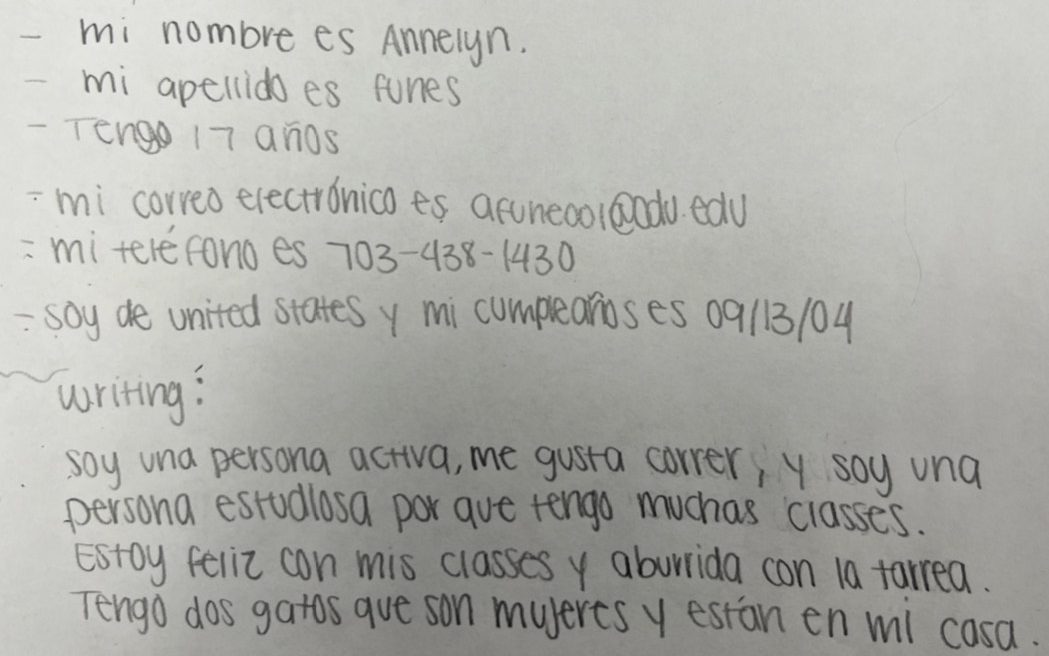 - mi nombre es Annelyn.
- mi apellido es funes
- Tengo 17 años
- mi correo electrónico es afune001@odu.edu
- mi teléfono es 703-438-1430
- soy de united states y mi cumpleaños es 09/13/04
writing:
soy una persona activa, me gusta correr, y soy una
persona estudiosa por que tengo muchas classes.
Estoy feliz con mis classes y aburrida con la tarrea.
Tengo dos gatos que son mujeres y están en mi casa.